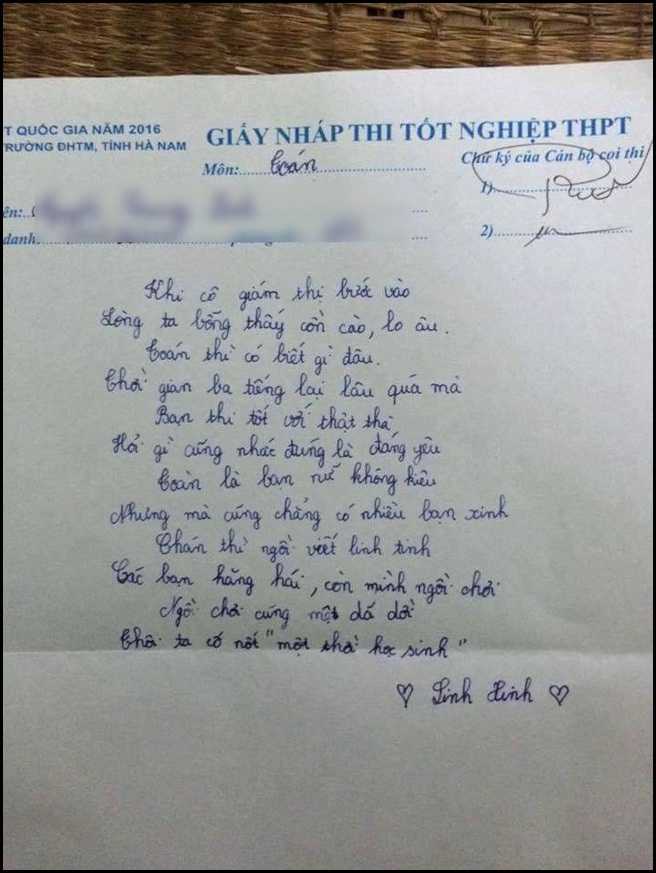 T QUỐC GIA NĂM 2016
TRƯỜNG ĐHTM, TỈNH HÀ NAM
GIẤY NHÁP THI TỐT NGHIỆP THPT
Môn: Toán
Chữ ký của Cán bộ coi thi
1)
ên:
danh
2)
Khi cô giám thị bước vào
Lòng ta bỗng thấy cồn cào, lo âu.
Toán thì có biết gì đâu.
Thời gian ba tiếng lại lâu quá mà
Bạn thi tốt với thật thà
Hỏi gì cũng nhắc đúng là đáng yêu
Toàn là bạn nữ không kiêu
Nhưng mà cũng chẳng có nhiều bạn xinh
Chán thì ngồi viết linh tinh
Các bạn hăng hái, còn mình ngồi chơi
Ngồi chơi cũng một dố dời
Thôi ta cố nốt "một thời học sinh"
♡ Linh Xinh ♡